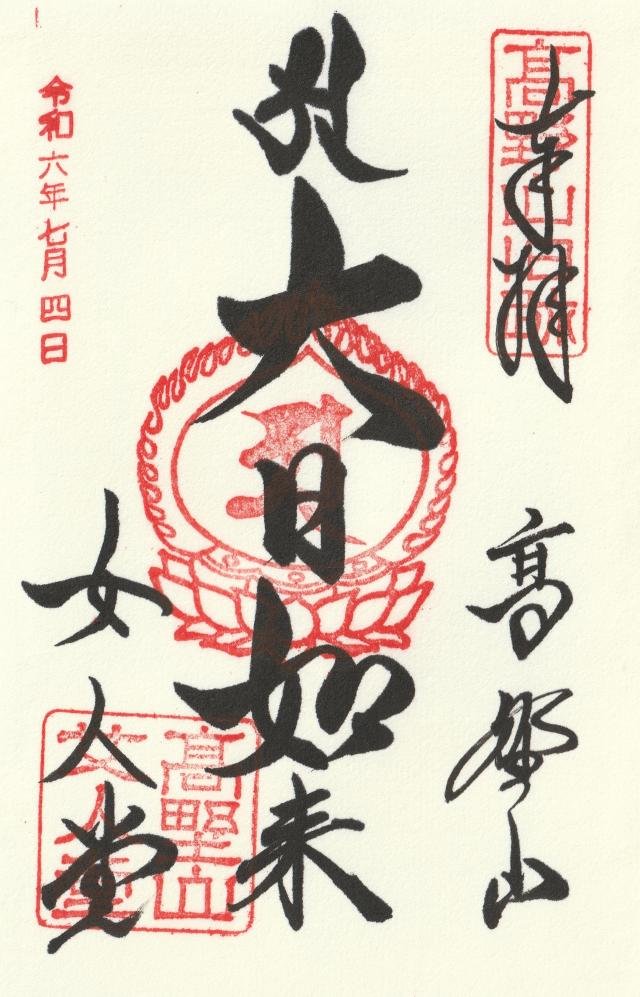 奉拝
高野山
大日如来
女人堂
令和六年七月四日
高野山
女人堂